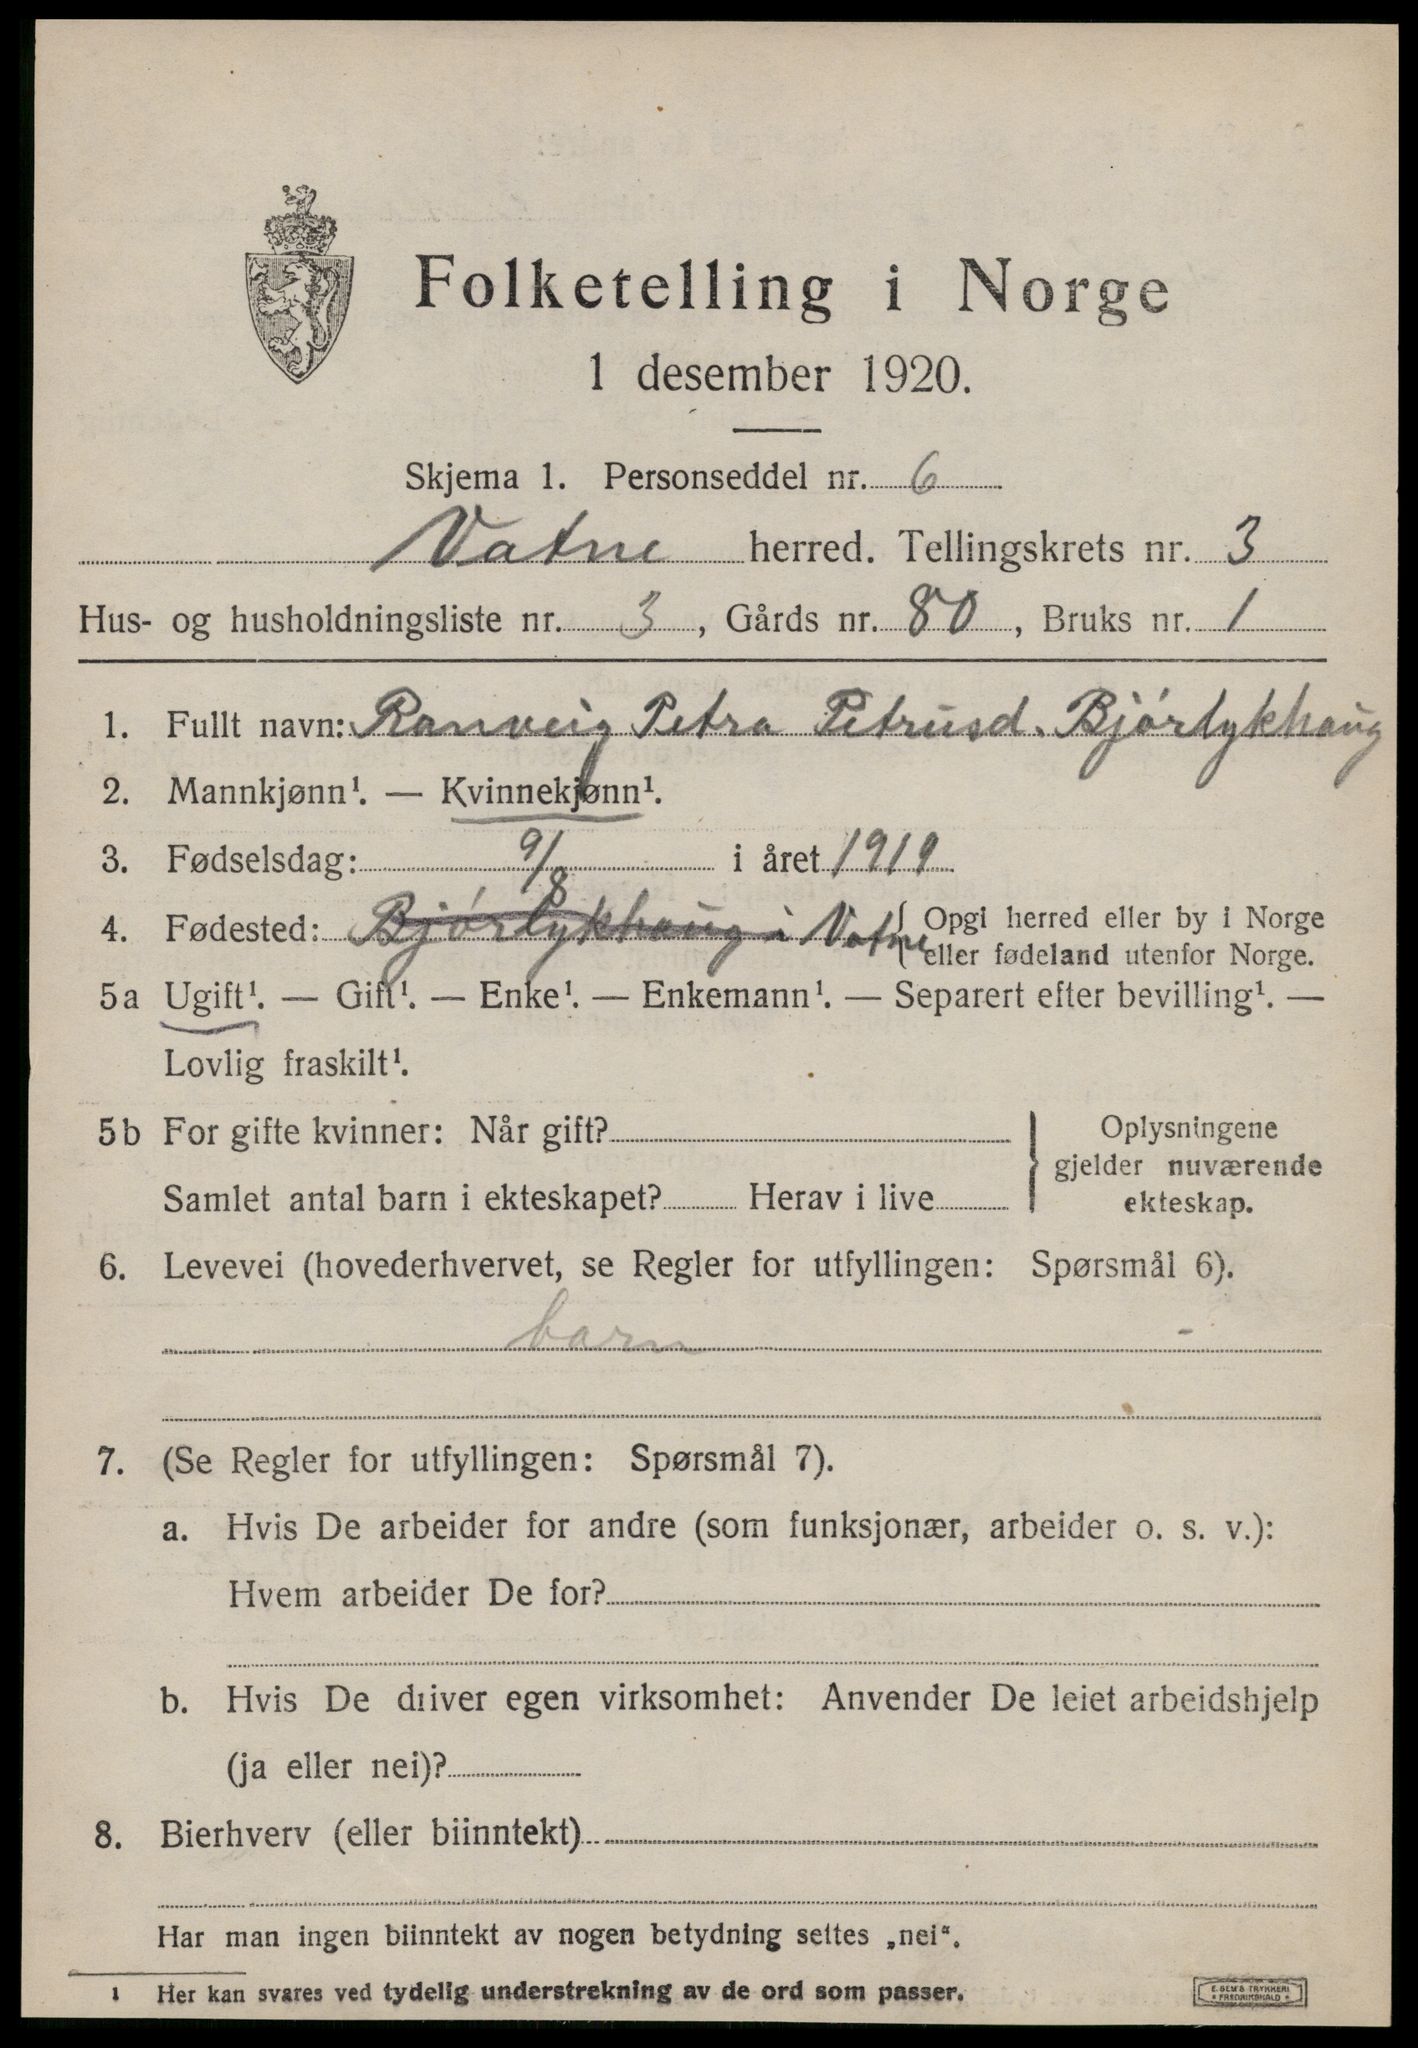 Folketelling i Norge
1 desember 1920.
Skjema 1. Personseddel nr. 6
Vatne herred. Tellingskrets nr. 3
Hus- og husholdningsliste nr. 3, Gårds nr. 80, Bruks nr. 1
1. Fullt navn: Ranveig Petra Petrusd. Bjørlykhaug
2. Mannkjønn¹. — Kvinnekjønn¹.
3. Fødselsdag: 9/8 i året 1919
4. Fødested: Bjørlykhaug i Vatne { Opgi herred eller by i Norge
eller fødeland utenfor Norge.
5a Ugift¹. — Gift¹. — Enke¹. — Enkemann¹. — Separert efter bevilling¹. —
Lovlig fraskilt¹.
5b For gifte kvinner: Når gift?
Samlet antal barn i ekteskapet? Herav i live
Oplysningene
gjelder nuværende
ekteskap.
6. Levevei (hovederhvervet, se Regler for utfyllingen: Spørsmål 6).
barn -
7. (Se Regler for utfyllingen: Spørsmål 7).
a. Hvis De arbeider for andre (som funksjonær, arbeider o. s. v.):
Hvem arbeider De for?
b. Hvis De driver egen virksomhet: Anvender De leiet arbeidshjelp
(ja eller nei)?
8. Bierhverv (eller biinntekt)
Har man ingen biinntekt av nogen betydning settes „nei“.
1 Her kan svares ved tydelig understrekning av de ord som passer.
E. SEM'S TRYKKERI
* FREDRIKSHALD *